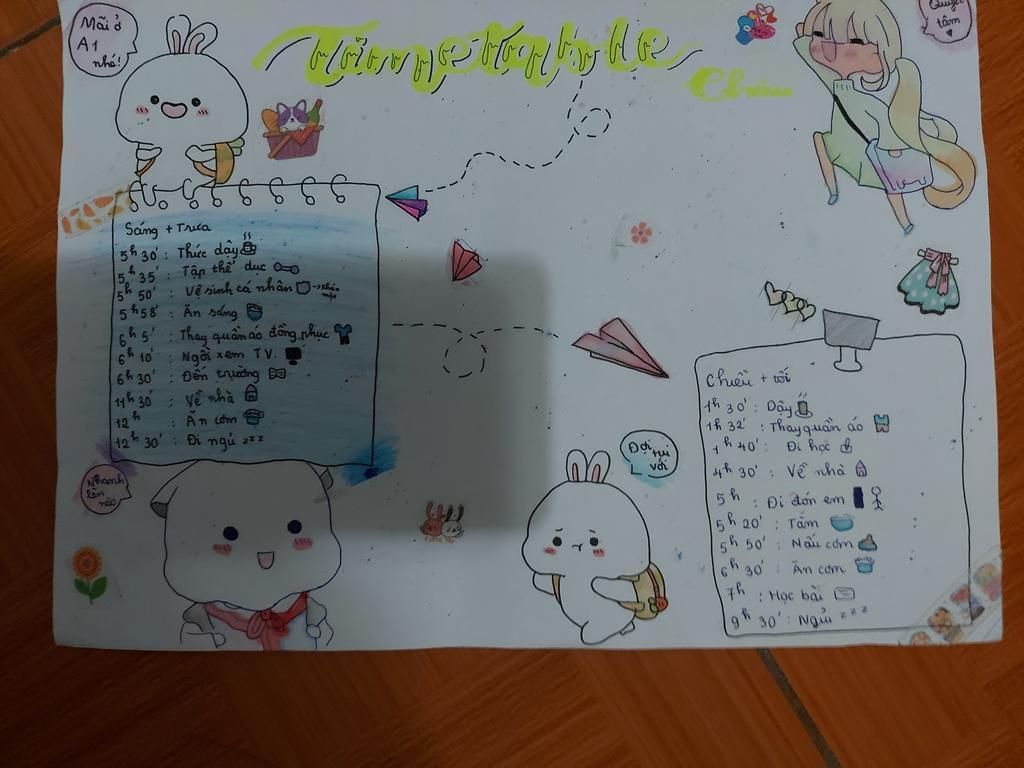 Mãi ở
A1
nhé!
Timetable
Quyết
tâm
Sáng + Trưa
5h 30' : Thức dậy
5h 35' : Tập thể dục
5h 50' : Vệ sinh cá nhân
5h 58' : Ăn sáng
6h 5' : Thay quần áo đồng phục
6h 10' : Ngồi xem TV.
6h 30' : Đến trường
11h 30' : Về nhà
12h : Ăn cơm
12h 30' : Đi ngủ zzz
Nhanh
lên
nào
Đợi
tui
với
Chiều + tối
1h 30' : Dậy
1h 32' : Thay quần áo
1h 40' : Đi học
4h 30' : Về nhà
5h : Đi đón em
5h 20' : Tắm
5h 50' : Nấu cơm
6h 30' : Ăn cơm
7h : Học bài
9h 30' : Ngủ zzz